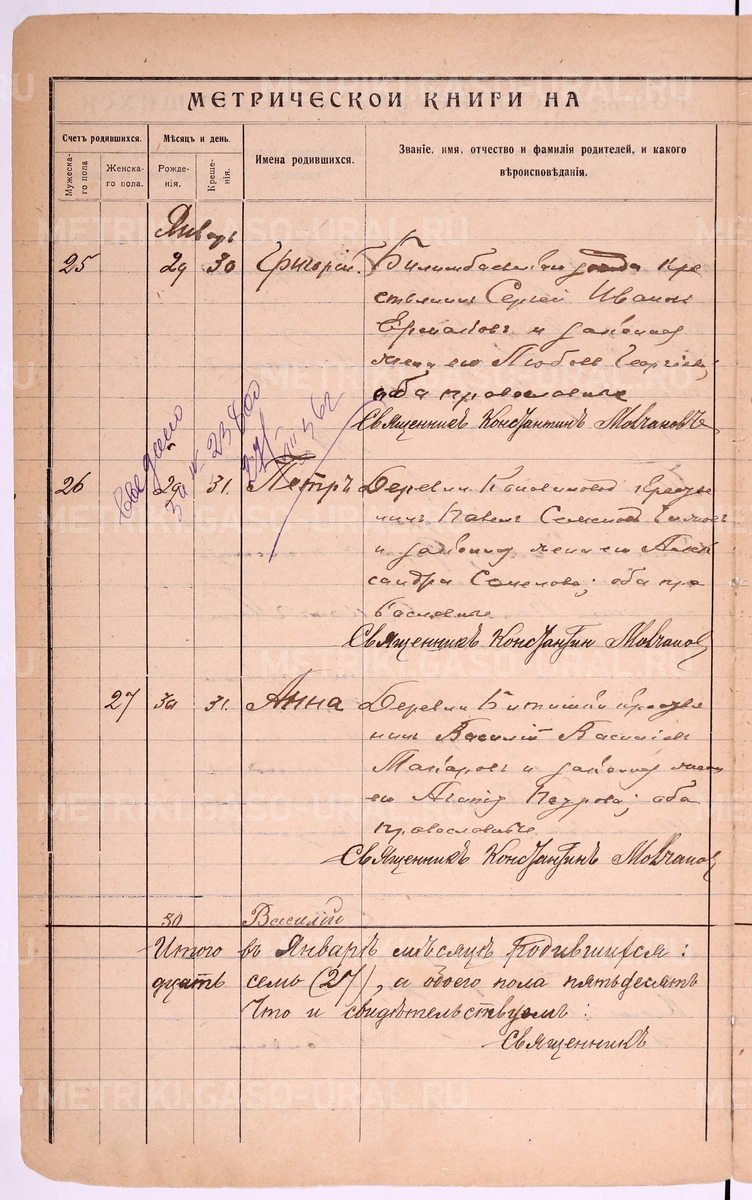 МЕТРИЧЕСКОЙ КНИГИ НА
Счетъ родившихся.
Мужеска-
го пола
Женска-
го пола.
Мѣсяцъ и день.
Рожде-
нія.
Креще-
нія.
Имена родившихся.
Званіе, имя, отчество и фамилія родителей, и какого
вѣроисповѣданія.
Январь
25 29 30 Григорій. завода кре
стьянинъ Сергѣй Иванов
Ермаковъ и законная
жена его Любовь Георгіева;
оба православные
Священникъ Константинъ Мовчановъ
26 29 31. Петръ Деревни крестья
нинъ Павелъ Семеновъ
и законная жена его Алек
сандра Семенова; оба пра
вославные
Священникъ Константин Мовчанов
27 30 31. Анна Деревни крестья
нинъ Василій Васильев
Макаровъ и законная жена
его Петрова; оба
православные
Священникъ Константинъ Мовчанов
30 Василій
Итого въ Январѣ мѣсяцѣ родившихся:
дцать семь (27), а обоего пола пятьдесятъ
Что и свидѣтельствуемъ:
Священникъ
METRIKI.GASO-URAL.RU